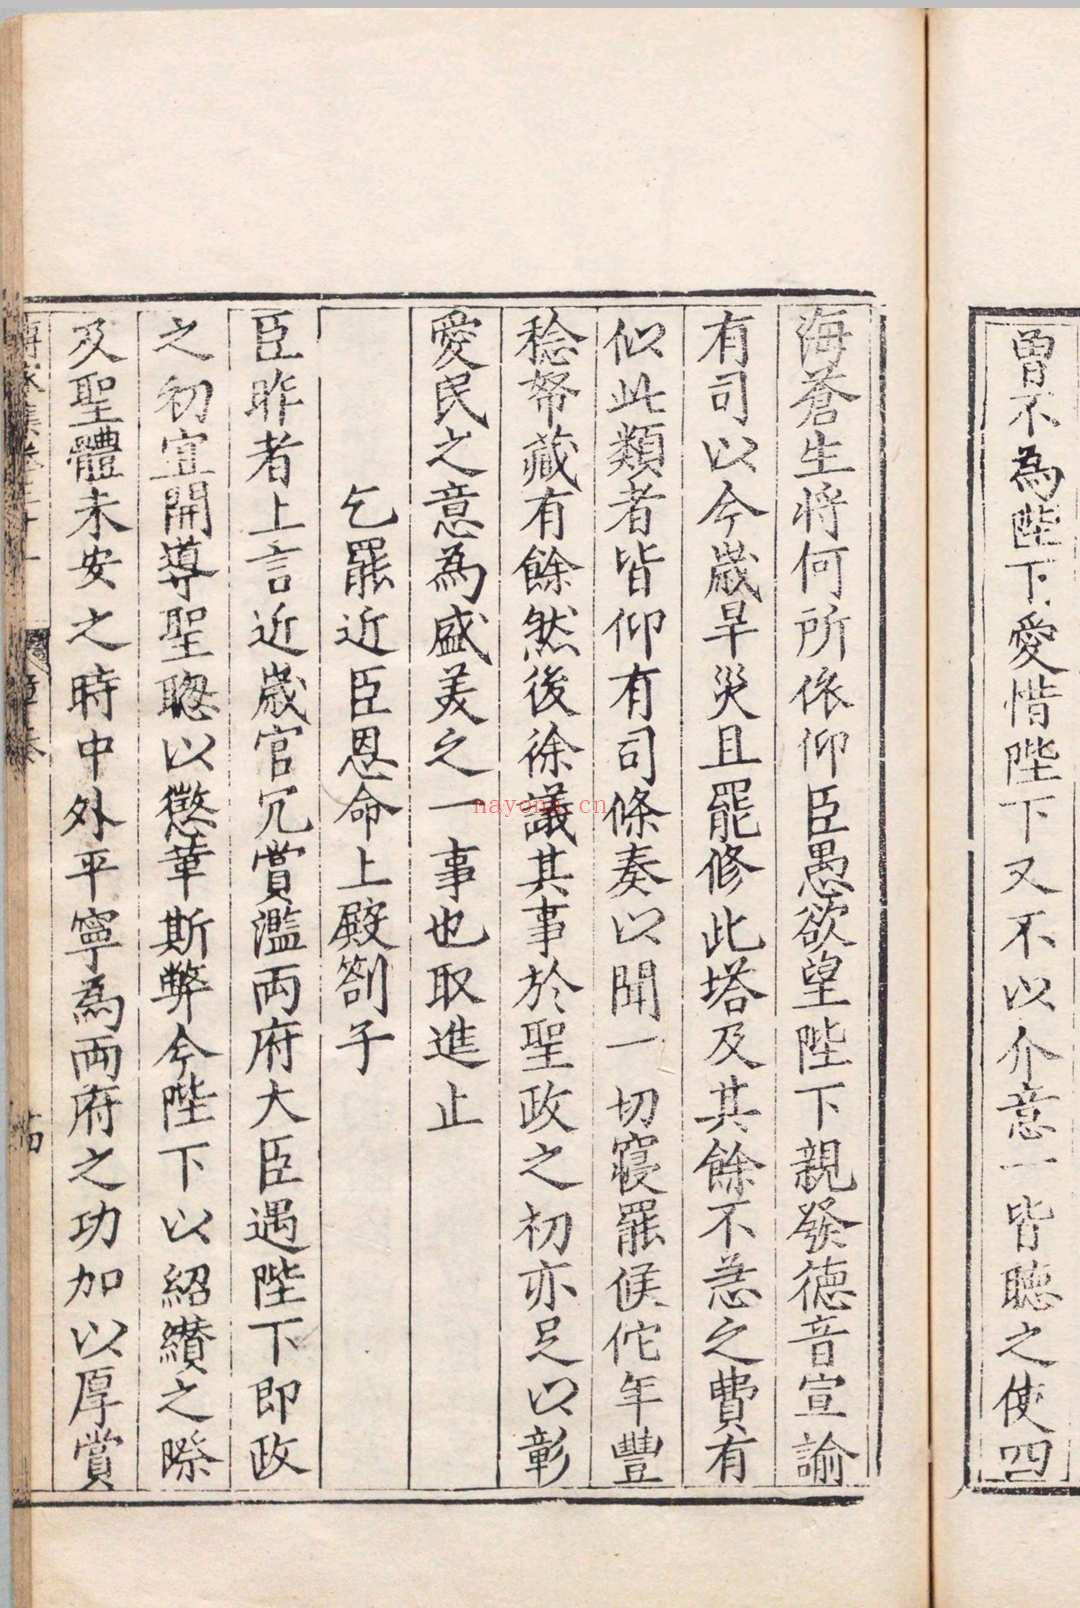 曽不為陛下愛惜陛下又不以介意一皆聽之使四
海蒼生將何所依仰臣愚欲望陛下親發德音宣諭
有司以今歲旱災且罷修此塔及其餘不急之費有
似此類者皆仰有司條奏以聞一切寢罷候佗年豐
稔帑藏有餘然後徐議其事於聖政之初亦足以彰
愛民之意為盛美之一事也取進止
乞罷近臣恩命上殿劄子
臣昨者上言近歲官冗賞濫兩府大臣遇陛下即政
之初宜開導聖聰以懲革斯弊今陛下以紹纘之際
及聖體未安之時中外平寧為兩府之功加以厚賞
nayona.cn